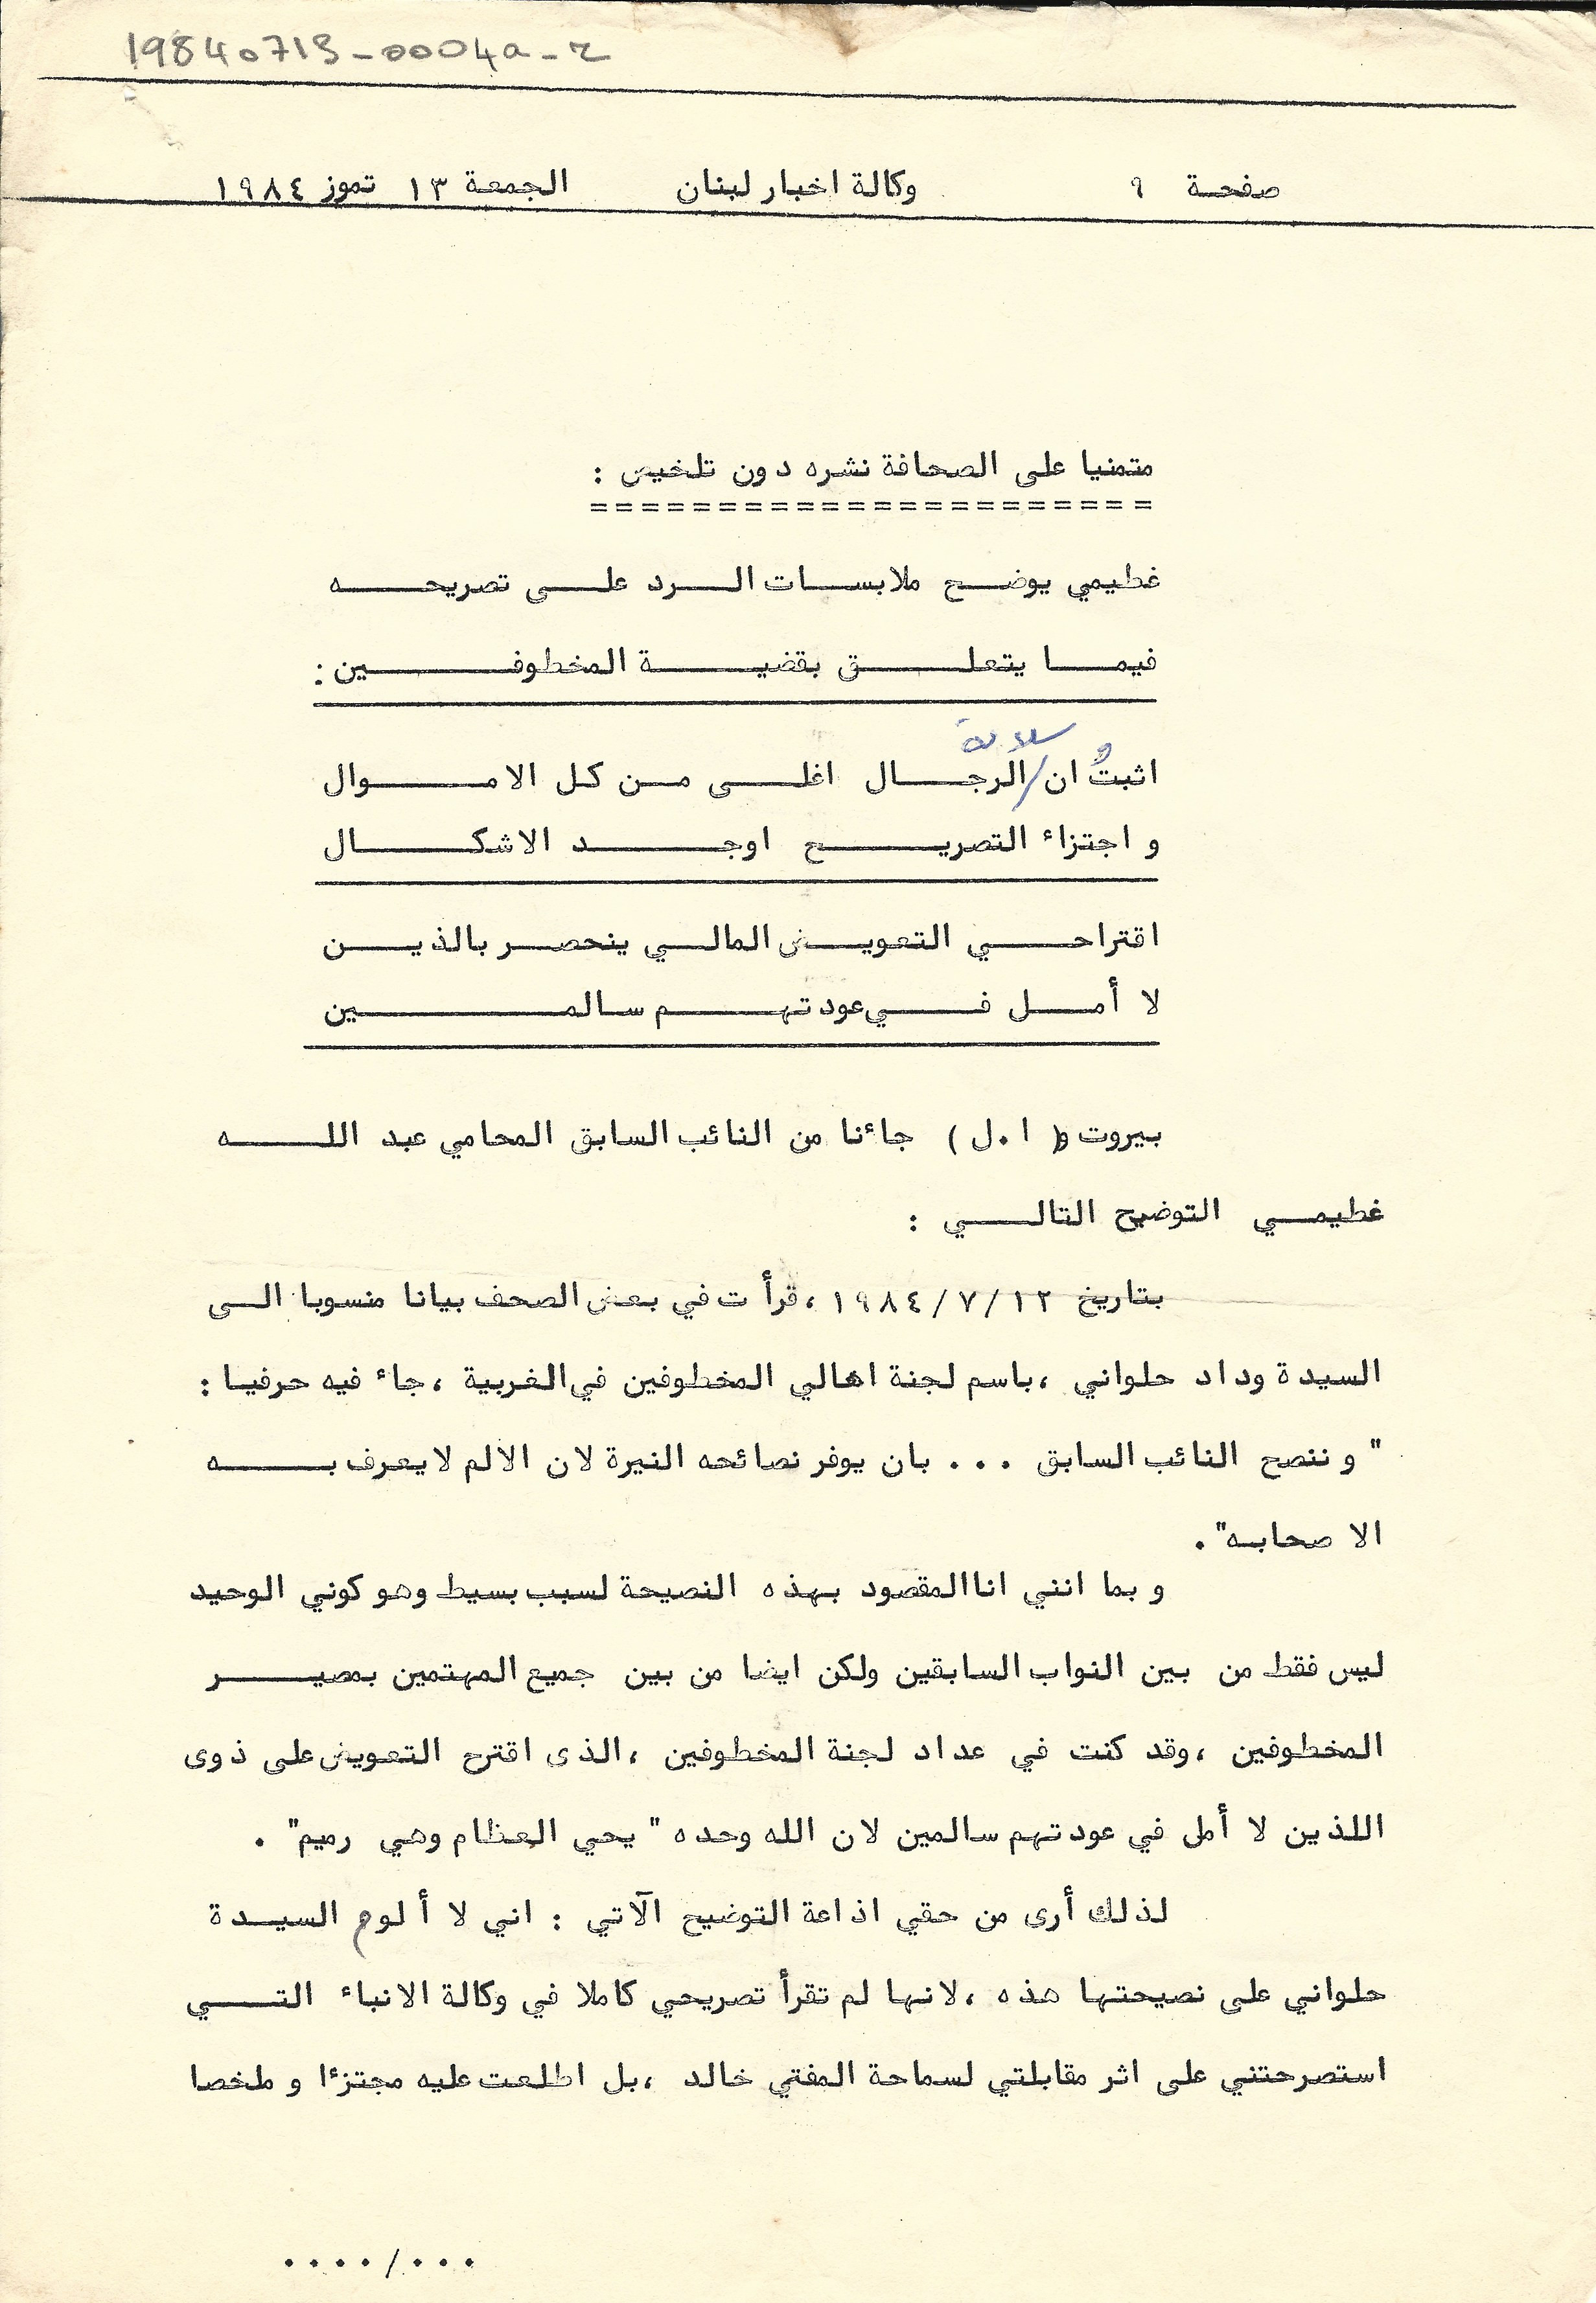 19840713-0004a-r
صفحة ٩ وكالة اخبار لبنان الجمعة ١٣ تموز ١٩٨٤
متمنيا على الصحافة نشره دون تلخيص :
======================
غطيمي يوضح ملابسات الرد على تصريحه
فيما يتعلق بقضية المخطوفين :
سلامة
اثبتُ ان / الرجال اغلى من كل الاموال
و اجتزاء التصريح اوجد الاشكال
اقتراحي التعويض المالي ينحصر بالذين
لا أمل في عودتهم سالمين
بيروت و( ا.ل ) جاءنا من النائب السابق المحامي عبد الله
غطيمي التوضيح التالي :
بتاريخ ١٢ /٧ /١٩٨٤ ، قرأت في بعض الصحف بيانا منسوبا الى
السيدة وداد حلواني ، باسم لجنة اهالي المخطوفين في الغربية ، جاء فيه حرفيا :
" و ننصح النائب السابق ... بان يوفر نصائحه النيرة لان الالم لا يعرف به
الا صحابه" .
و بما انني انا المقصود بهذه النصيحة لسبب بسيط وهو كوني الوحيد
ليس فقط من بين النواب السابقين ولكن ايضا من بين جميع المهتمين بمصير
المخطوفين ، وقد كنت في عداد لجنة المخطوفين ، الذى اقترح التعويض على ذوى
اللذين لا أمل في عودتهم سالمين لان الله وحده " يحي العظام وهي رميم" .
لذلك أرى من حقي اذاعة التوضيح الآتي : اني لا ألوم السيدة
حلواني على نصيحتها هذه ، لانها لم تقرأ تصريحي كاملا في وكالة الانباء التي
استصرحتني على اثر مقابلتي لسماحة المفتي خالد ، بل اطلعت عليه مجتزءا و ملخصا
..../...